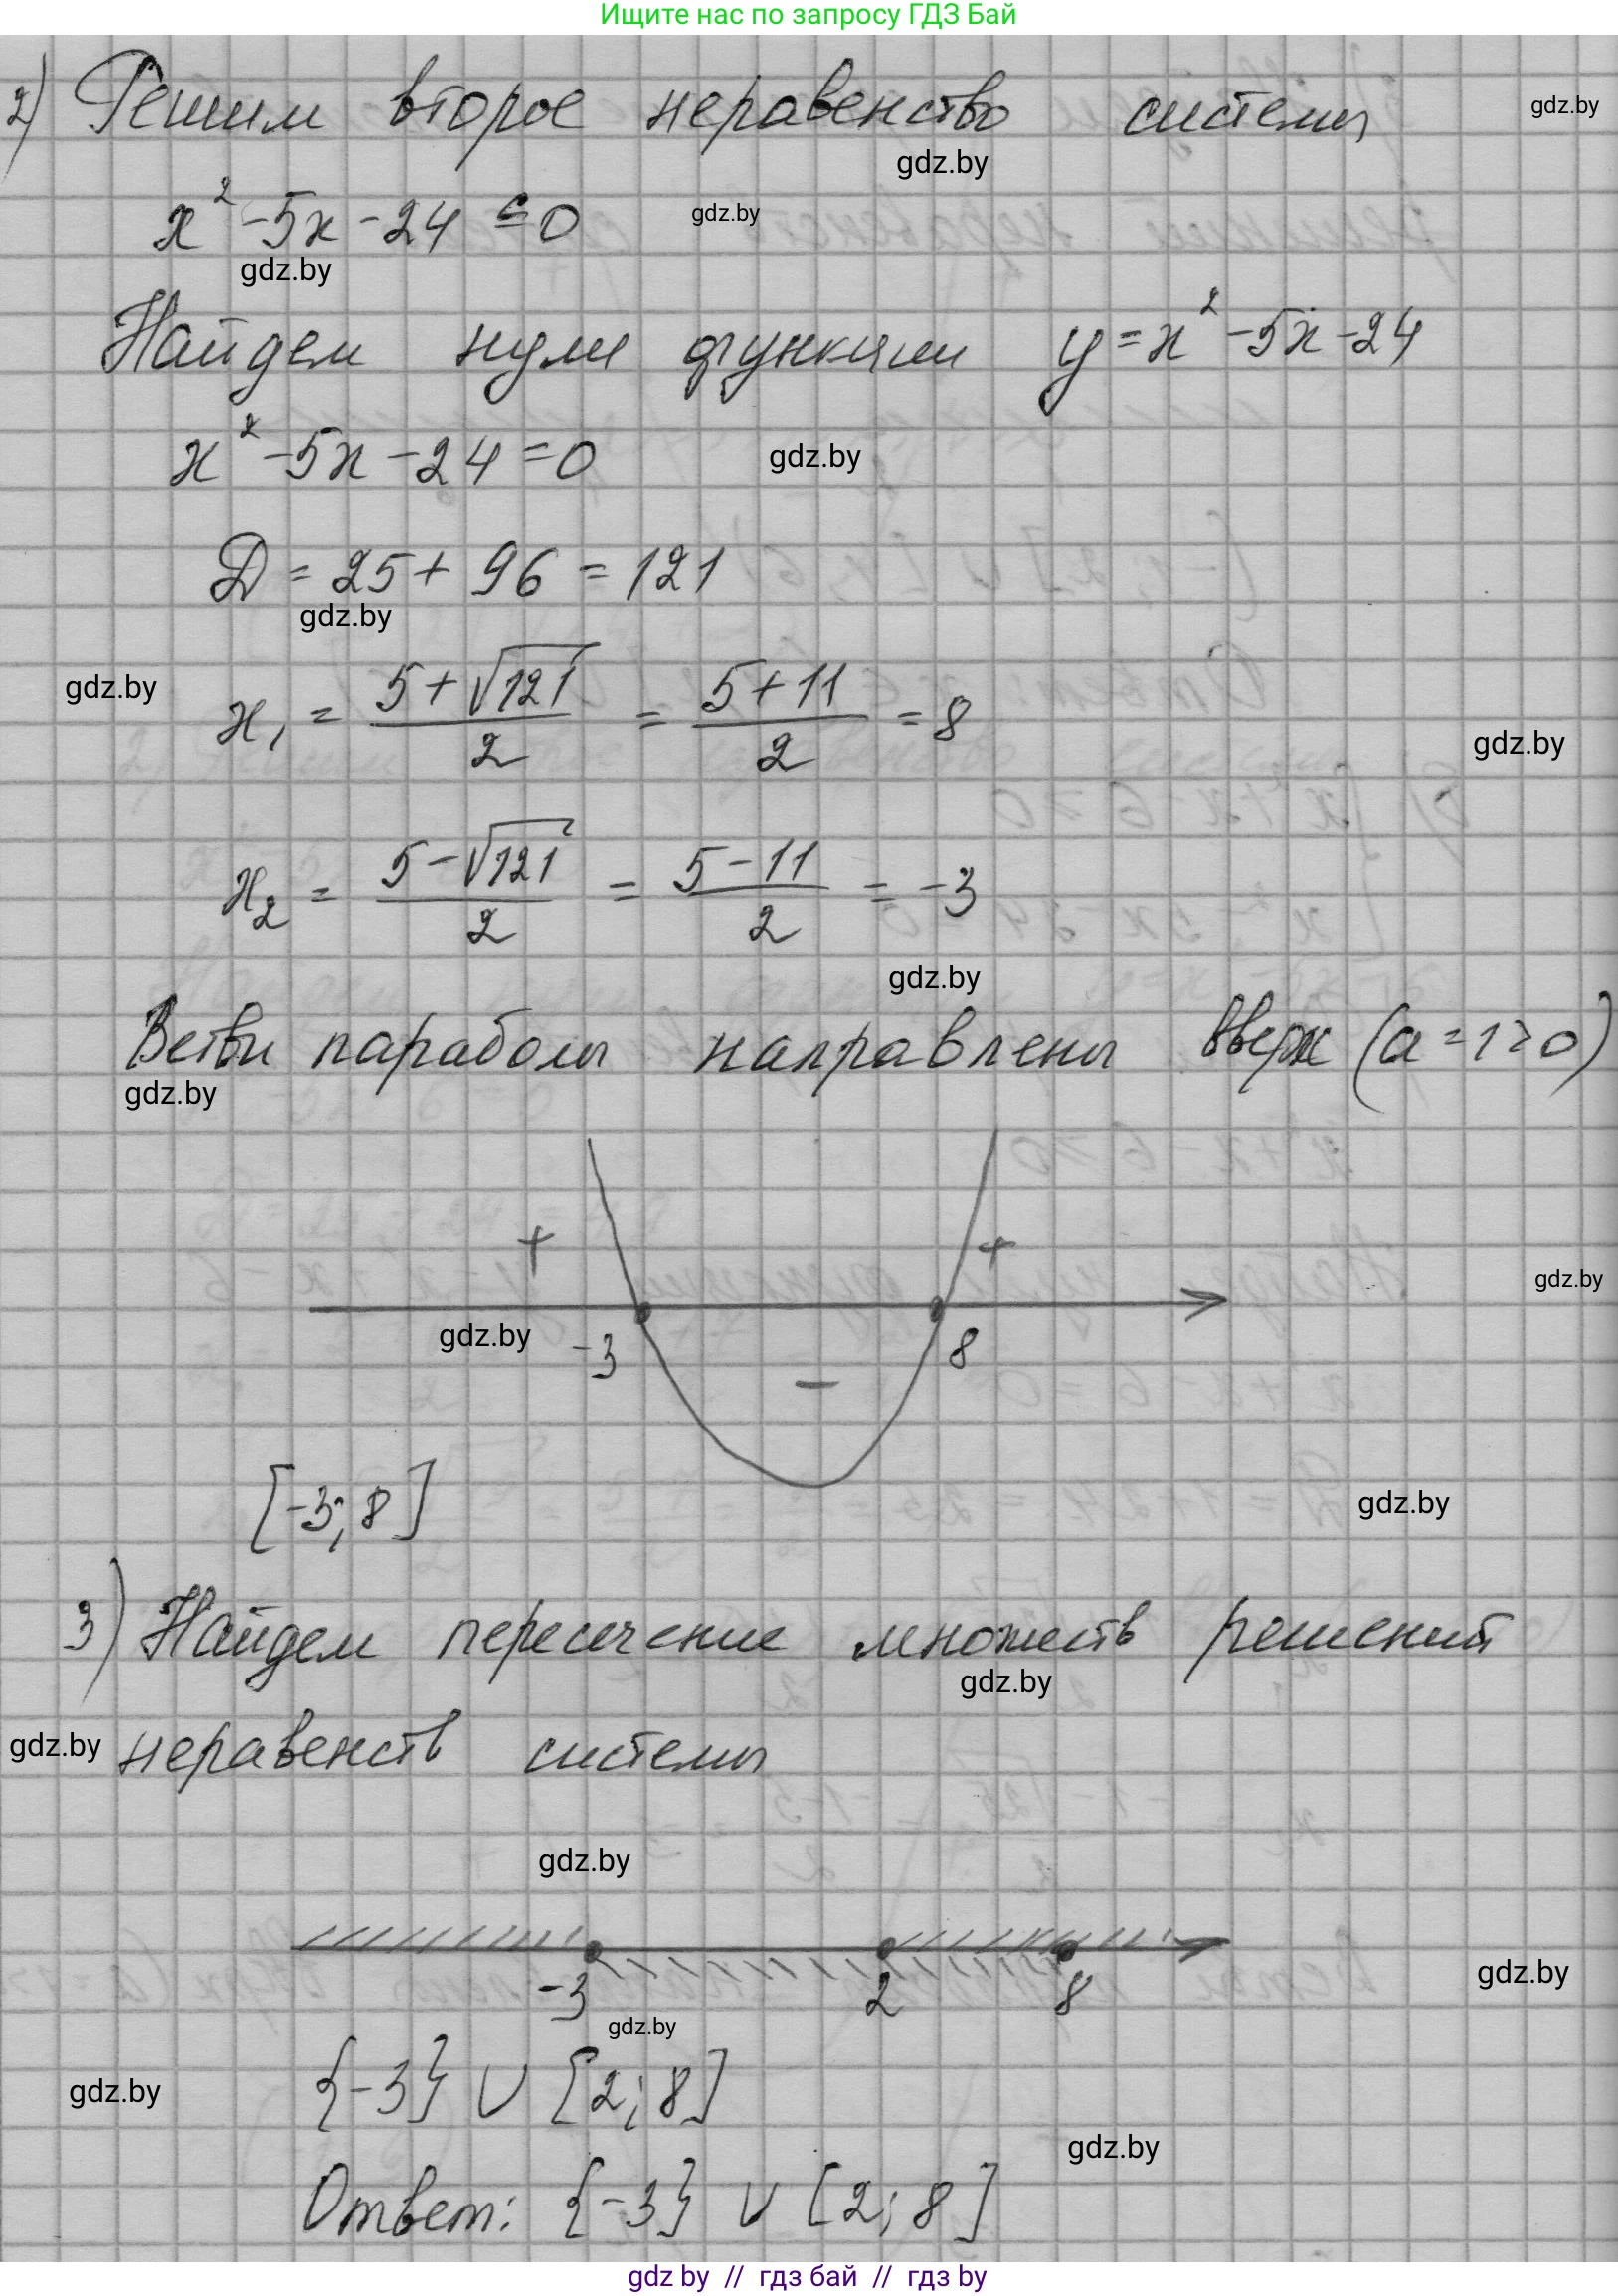 Ищите нас по запросу ГДЗ Бай
2) Решим второе неравенство системы
gdz.by
gdz.by
x² -5x -24 ≤ 0
gdz.by
gdz.by
Найдем нули функции y = x² -5x -24
x² -5x -24 = 0
gdz.by
D = 25 + 96 = 121
gdz.by
gdz.by
x₁ = (5+√121)/2 = (5+11)/2 = 8
gdz.by
x₂ = (5-√121)/2 = (5-11)/2 = -3
gdz.by
Ветви параболы направлены вверх (a = 1 > 0)
gdz.by
+ +
gdz.by
gdz.by
-3 8
-
[-3; 8]
gdz.by
3) Найдем пересечение множеств решений
gdz.by
gdz.by
неравенств системы
gdz.by
-3 2 8
gdz.by
gdz.by
{-3} ∪ [2; 8]
gdz.by
gdz.by
Ответ: {-3} ∪ [2; 8]
gdz by // гдз бай // гдз by